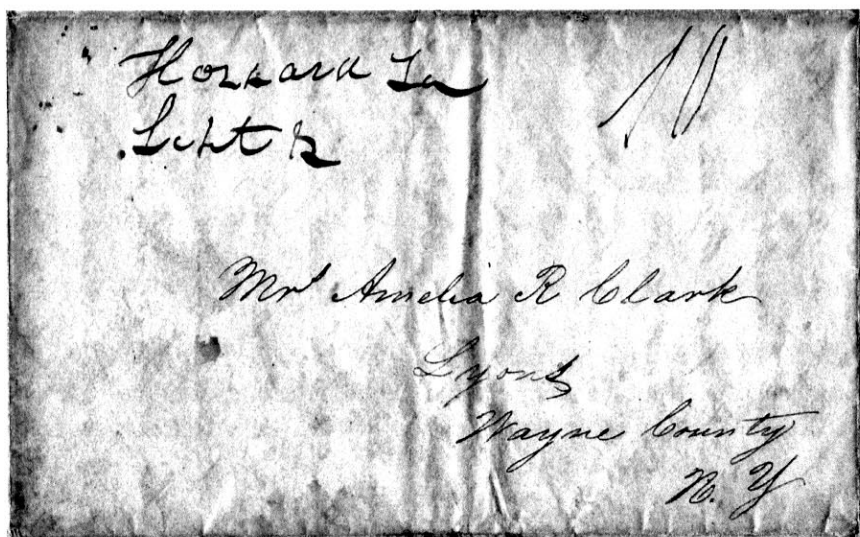 Holland
Sept 12
10
Mrs Amelia R Clark
Lyons
Wayne County
N. Y